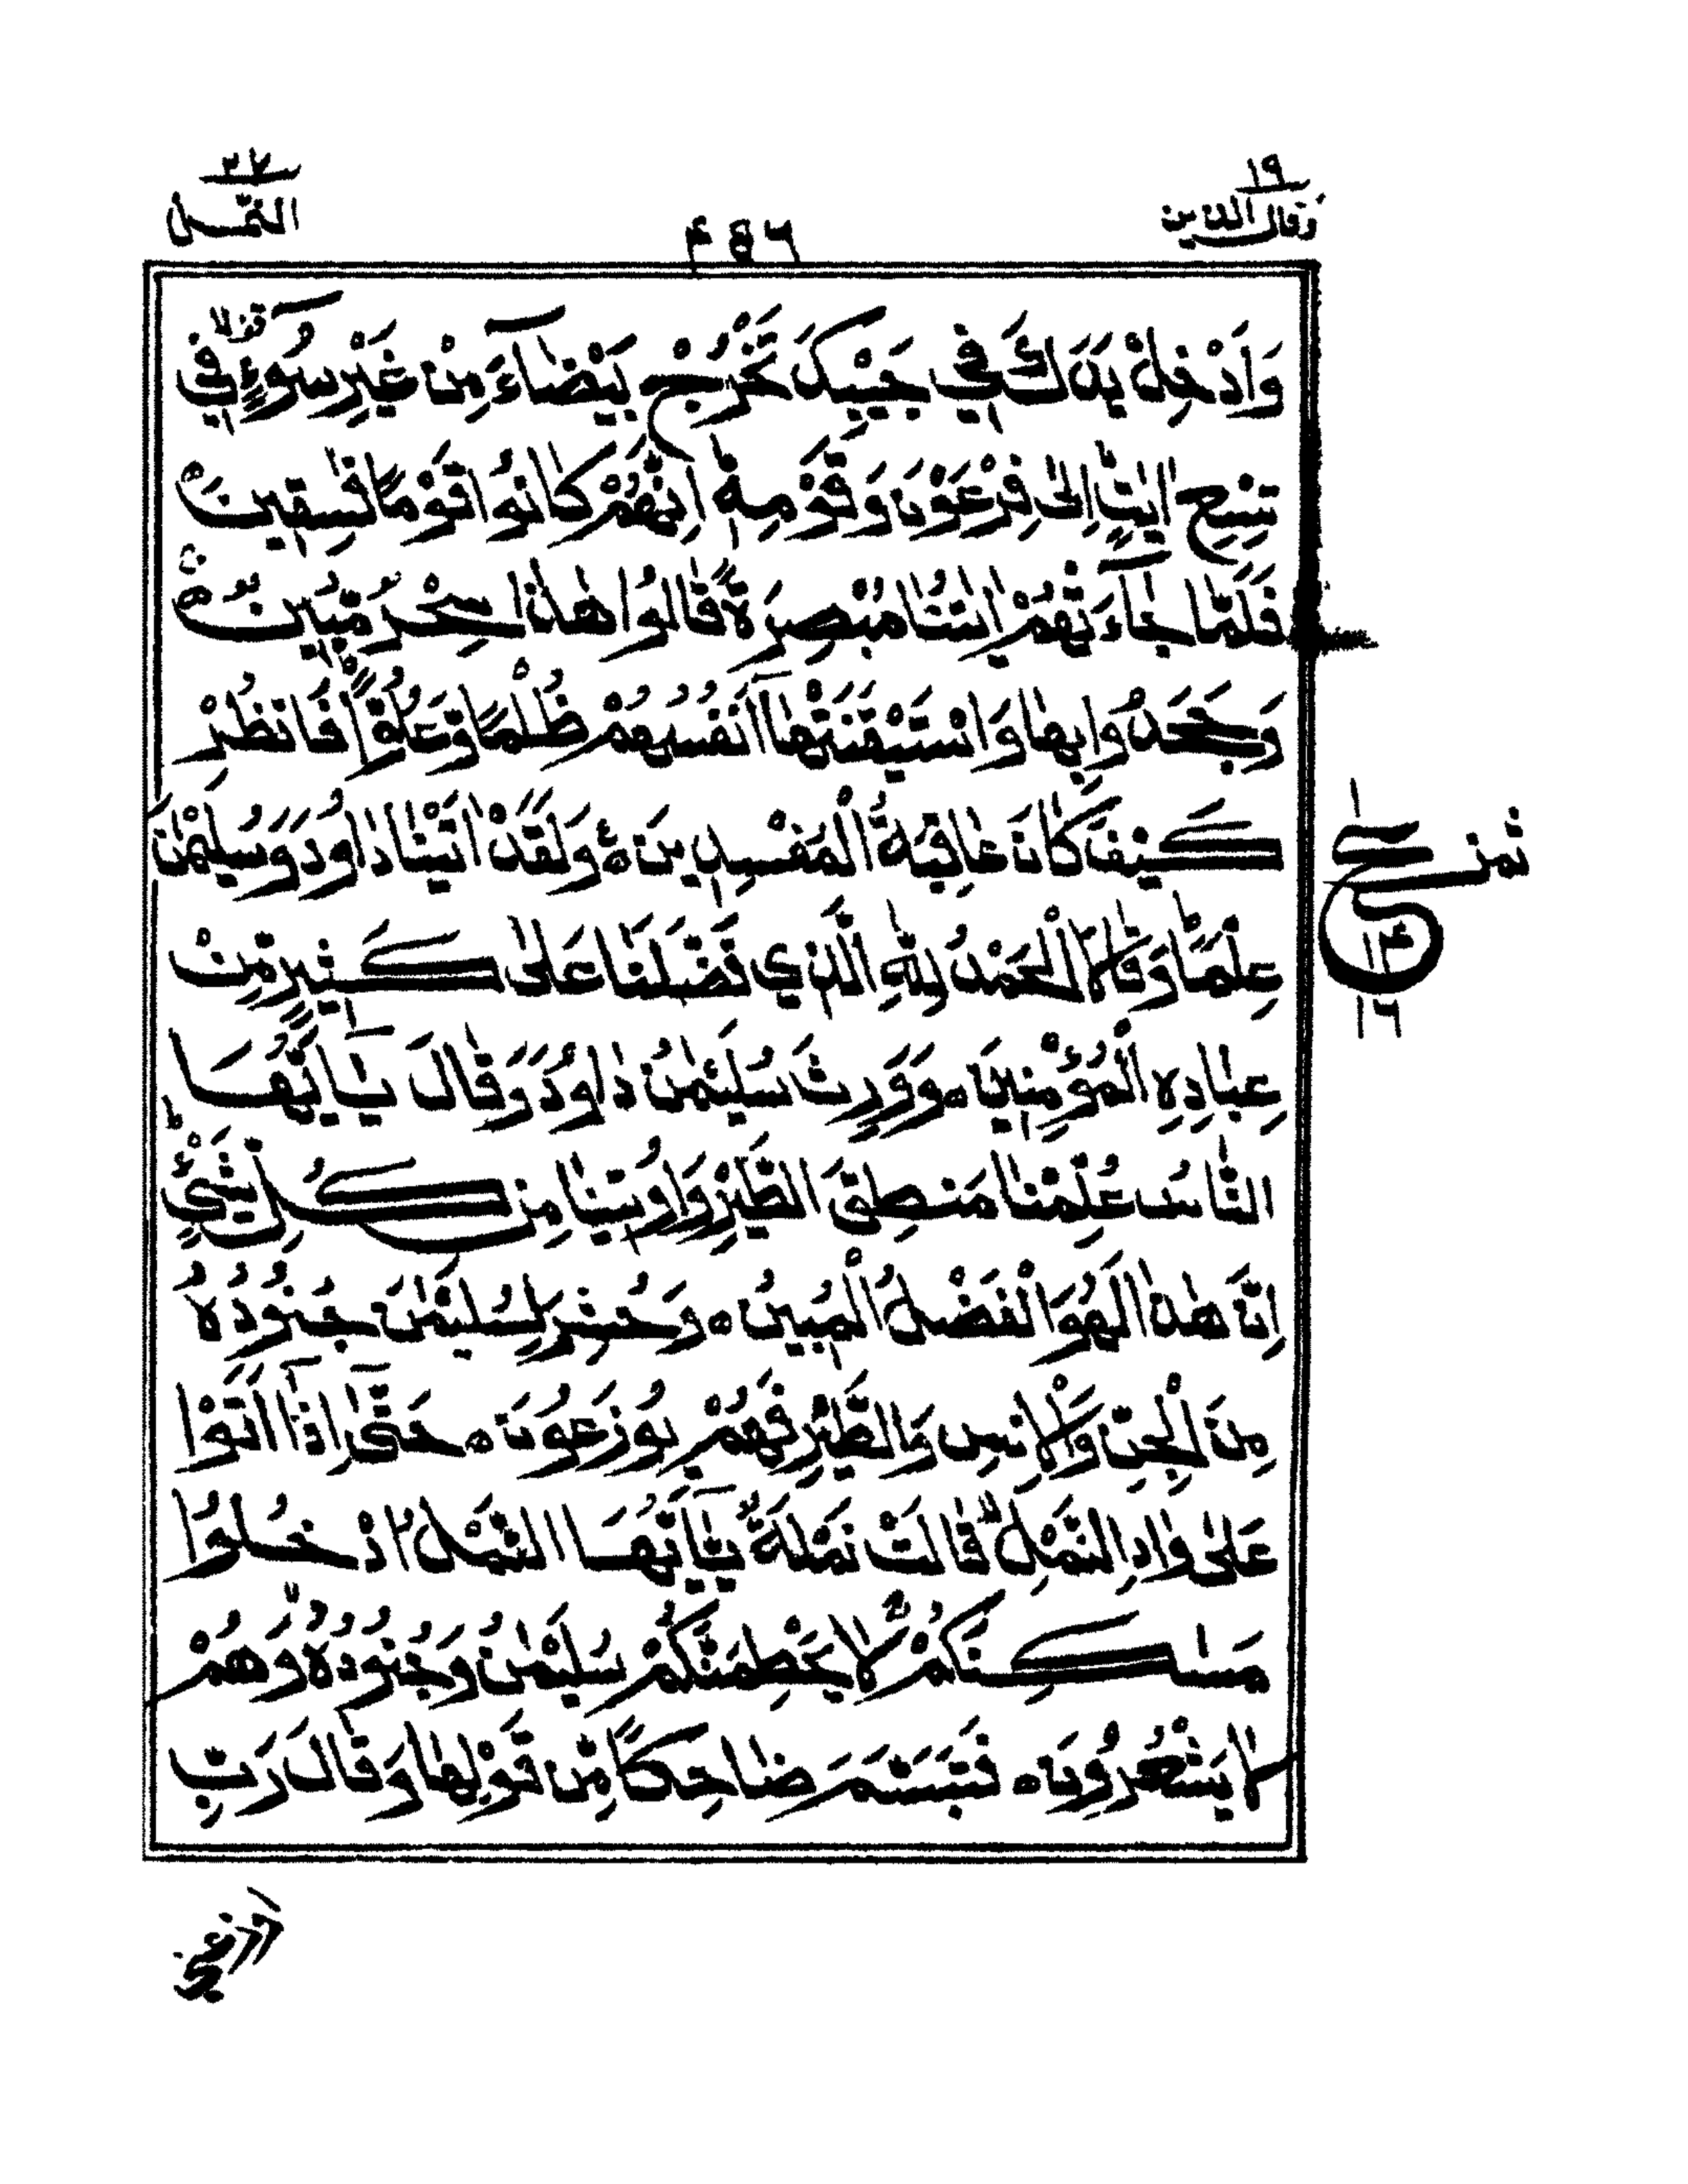 ١٩
وَقَالَ الَّذِينَ
٤٥٦
٢٧
النَّمْل
وَاَدْخِلْ يَدَكَ فِيْ جَيْبِكَ تَخْرُجْ بَيْضَآءَ مِنْ غَيْرِ سُوْٓءٍ فِيْ
تِسْعِ اٰيٰتٍ اِلٰى فِرْعَوْنَ وَقَوْمِهٖ ؕ اِنَّهُمْ كَانُوْا قَوْمًا فٰسِقِيْنَ ۝
فَلَمَّا جَآءَتْهُمْ اٰيٰتُنَا مُبْصِرَةً قَالُوْا هٰذَا سِحْرٌ مُّبِيْنٌ ۝
وَجَحَدُوْا بِهَا وَاسْتَيْقَنَتْهَاۤ اَنْفُسُهُمْ ظُلْمًا وَّعُلُوًّا ؕ فَانْظُرْ
كَيْفَ كَانَ عَاقِبَةُ الْمُفْسِدِيْنَ ۝ وَلَقَدْ اٰتَيْنَا دَاوٗدَ وَسُلَيْمٰنَ
عِلْمًا ؕ وَقَالَا الْحَمْدُ لِلّٰهِ الَّذِيْ فَضَّلَنَا عَلٰى كَثِيْرٍ مِّنْ
عِبَادِهِ الْمُؤْمِنِيْنَ ۝ وَوَرِثَ سُلَيْمٰنُ دَاوٗدَ وَقَالَ يٰۤاَيُّهَا
النَّاسُ عُلِّمْنَا مَنْطِقَ الطَّيْرِ وَاُوْتِيْنَا مِنْ كُلِّ شَيْءٍ ؕ
اِنَّ هٰذَا لَهُوَ الْفَضْلُ الْمُبِيْنُ ۝ وَحُشِرَ لِسُلَيْمٰنَ جُنُوْدُهٗ
مِنَ الْجِنِّ وَالْاِنْسِ وَالطَّيْرِ فَهُمْ يُوْزَعُوْنَ ۝ حَتّٰۤى اِذَاۤ اَتَوْا
عَلٰى وَادِ النَّمْلِ ۙ قَالَتْ نَمْلَةٌ يّٰۤاَيُّهَا النَّمْلُ ادْخُلُوْا
مَسٰكِنَكُمْ ۚ لَا يَحْطِمَنَّكُمْ سُلَيْمٰنُ وَجُنُوْدُهٗ ۙ وَهُمْ
لَا يَشْعُرُوْنَ ۝ فَتَبَسَّمَ ضَاحِكًا مِّنْ قَوْلِهَا وَقَالَ رَبِّ
ثمن
ع
١٤
١٦
اوزعني